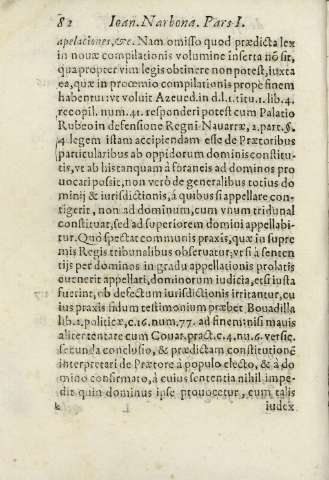 82 Ioan. Narbona. Pars I.
apelaciones, &c. Nam omisso quod prædicta lex
in nouæ compilationis volumine inserta nõ sit,
qua propter vim legis obtinere non potest, iuxta
ea, quæ in procemio compilationis propè finem
habentur: vt voluit Azeued. in d.l.1. titu.1. lib.4.
recopil. num.41. responderi potest cum Palatio
Rubeo in defensione Regni Nauarræ, 2. part. §.
4. legem istam accipiendam esse de Prætoribus
particularibus ab oppidorum dominis constitu-
tis, vt ab his tanquam à foraneis ad dominos pro
uocari possit, non verò de generalibus totius do
minij & iurisdictionis, à quibus si appellare con-
tigerit, non ad dominum, cum vnum tribunal
constituat, sed ad superiorem domini appellabi-
tur. Quò spectat communis praxis, quæ in supre
mis Regis tribunalibus obseruatur, vt si à senten
tijs per dominos in gradu appellationis prolatis
euenerit appellari, dominorum iudicia, etsi iusta
fuerint, ob defectum iurisdictionis irritantur, cu
ius praxis fidum testimonium præbet Bouadilla
lib.2. politicæ, c.16. num.77. ad finem: nisi mauis
aliter tentare cum Couar. pract. c.4. nu.6. versic.
secunda conclusio, & prædictam constitutionẽ
interpretari de Prætore à populo electo, & à do
mino confirmato, à cuius sententia nihil impe-
dit quin dominus ipse prouocetur, cum talis
iudex